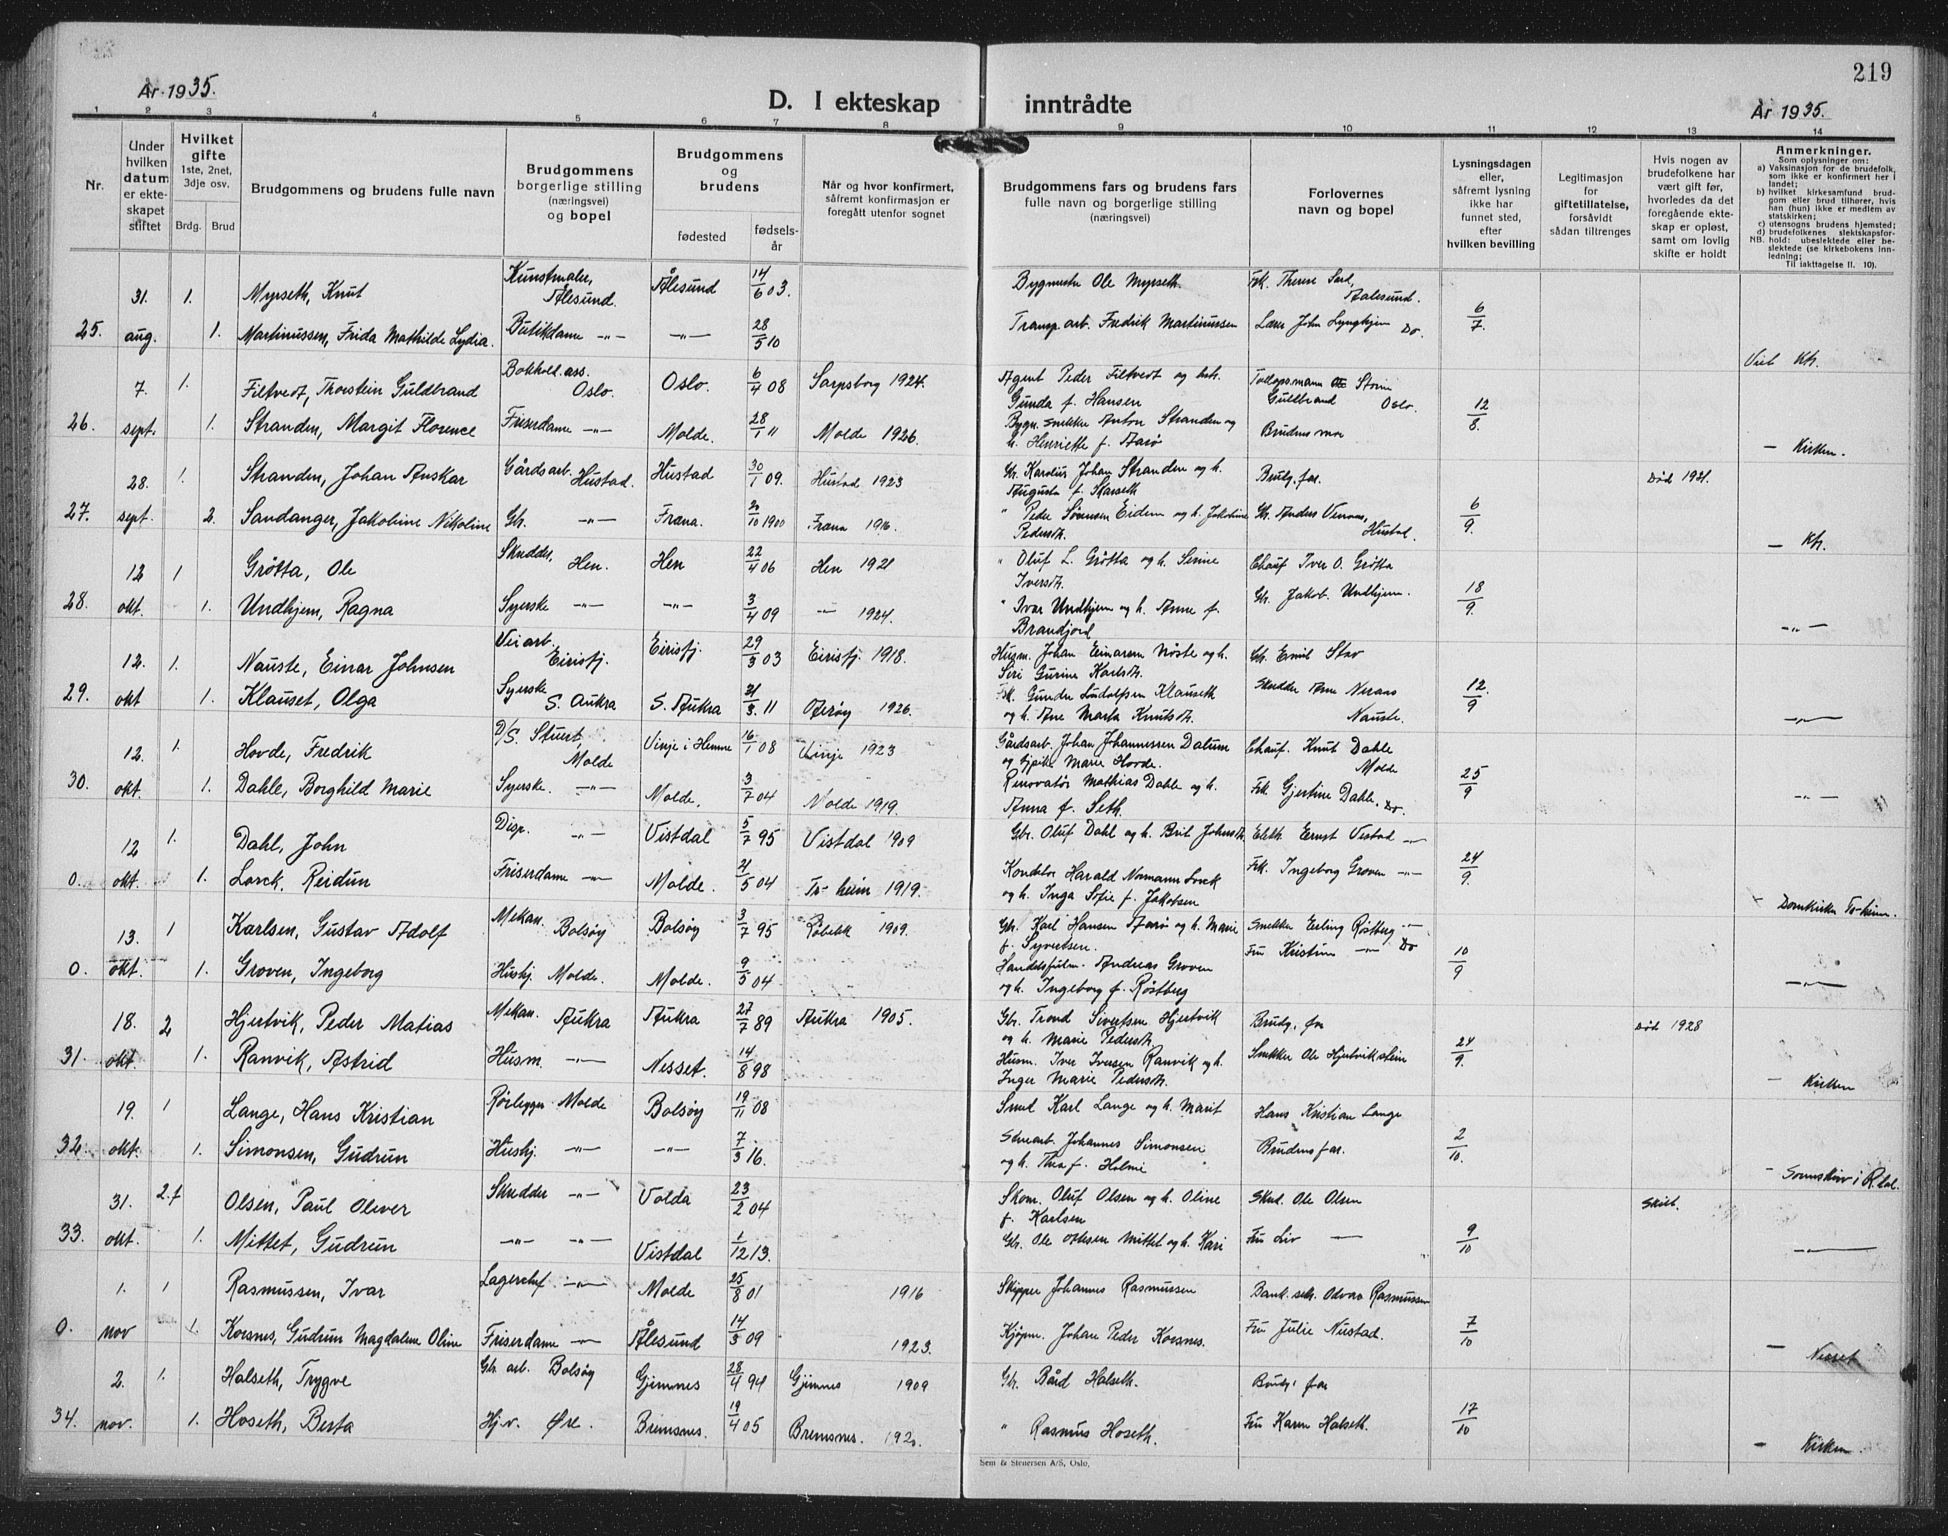 219
År 1935.
D. I ekteskap inntrådte
År 1935.
1 2 3 4 5 6 7 8 9 10 11 12 13 14
Nr.
Under hvilken datum er ekteskapet stiftet
Hvilket gifte 1ste, 2net, 3dje osv.
Brdg. Brud
Brudgommens og brudens fulle navn
Brudgommens borgerlige stilling (næringsvei) og bopel
Brudgommens og brudens
fødested
fødselsår
Når og hvor konfirmert, såfremt konfirmasjon er foregått utenfor sognet
Brudgommens fars og brudens fars fulle navn og borgerlige stilling (næringsvei)
Forlovernes navn og bopel
Lysningsdagen eller, såfremt lysning ikke har funnet sted, efter hvilken bevilling
Legitimasjon for giftetillatelse, forsåvidt sådan tiltrenges
Hvis nogen av brudefolkene har vært gift før, hvorledes da det foregående ekteskap er opløst, samt om lovlig skifte er holdt
Anmerkninger.
Som oplysninger om:
a) Vaksinasjon for de brudefolk, som ikke er konfirmert her i landet;
b) hvilket kirkesamfund brudgom eller brud tilhører, hvis han (hun) ikke er medlem av statskirken;
c) utensogns brudens hjemsted;
d) brudefolkenes slektskapsforhold: ubeslektede eller beslektede (se kirkebokens innledning;
NB. Til iakttagelse ll. 10).
31. 1. Myrseth, Knut Kunstmaler, Ålesund. Ålesund 14/6 03. Bygmester Ole Myrseth. Frk. Therese Aalesund.
25. aug. 1. Martinussen, Frida Mathilde Lydia. Butikdame -"- -"- 28/5 10 Transp. arb. Fredrik Martinussen Lærer John Lynghjem Do. 6/7. Viet Kh.
7. 1. Filtvedt, Thorstein Guldbrand Bokhold. ass. Oslo. Oslo. 6/4 08 Sarpsborg 1924. Agent Peder Filtvedt og h. Gunda f. Hansen Guldbrand Oslo. 12/8.
26. sept. 1. Stranden, Margit Florence Friserdame -"- Molde. 28/1 11 Molde 1926. Bygn. snekker Anton Stranden og h. Henriette f. Aarø Brudens mor - Kirken.
28. 1. Stranden, Johan Anskar Gårdsarb. Hustad. Hustad 30/1 09. Hustad 1923 Gbr. Karolius Johan Stranden og h. Augusta f. Skarseth Brudg. far. Død 1931.
27. sept. 2. Sandanger, Jakobine Nikoline Gbr. -"- Fræna. 10 1900 Fræna 1916. " Peder Sørensen Eidem og h. Jakobine Pedersdt. Gbr. Anders Hustad. 6/9. - Kh.
12 1 Grøtta, Ole Skredder, Hen. Hen 22/4 06 Hen 1921 " Oluf L. Grøtta og h. Serine Iversdt. Chauf Iver O. Grøtta
28. okt. 1. Undhjem, Ragna Syerske -"- -"- 3/4 09 -"- 1924. " Ivar Undhjem og h. Anne f. Brandjord Gbr. Jakob. Undhjem. 18/9. -"-
12. 1. Nauste, Einar Johnsen Veiarb. Eirisfj. Eirisfj. 29/3 03 Eirisfj. 1918. Husm. Johan Einarsen Nøste og h. Siri Gurine Karlsdt. Gbr. Emil Stav
29. okt 1. Klauset, Olga Syerske S. Aukra S. Aukra 21/3. 11 Aterøy 1926. Fsk. Gunder Ludolfsen Klauseth og h. Ane Marta Knutsdt. Skredder Arne Neraas Nauste. 12./9 -"-
12. 1. Hovde, Fredrik D/S. Stuert, Molde Vinje i Hemne 16/1 08 Vinje 1923 Gårdsarb. Johan Johannessen Dalum og pike Marie Hovde. Chauf. Knut Dahle Molde
30. okt. 1. Dahle, Borghild Marie Syerske. -"- Molde. 3/7 04 Molde 1919. Renovatør Matthias Dahle og h. Anna f. Seth. Frk. Gjertine Dahle. Do. 25/9 -"-
12 1. Dahl, John Disp. -"- Vistdal 5/7 95 Vistdal 1909 Gbr. Oluf Dahl og h. Brit Johnsdt. Elektr. Ernst Vestad -"-
0. okt. 1. Lorck, Reidun Friserdame -"- Molde. 21/5 04 Tr-heim 1919. Konditor Harald Normann Lorck og h. Inga Sofie f. Jakobsen Frk. Ingeborg Groven -"- 24/9. - Domkirken Tr-heim.
13. 1 Karlsen, Gustav Adolf Mekan. Bolsøy Bolsøy 3/7 95 Røbekk 1909. Gbr. Karl Hansen Aarø og h. Marie f. Syvertsen. Snekker Erling Røstberg -"-
0. okt. 1. Groven, Ingeborg Hushj. Molde. Molde. 9/5 04 Handelsfulm. Andreas Groven og h. Ingeborg f. Røstberg Fru Kristine -"- Do 10/9 -"-
18. 2 Hjertvik, Peder Matias Mekan. Aukra Aukra 27/7 89 Aukra 1905. Gbr. Trond Sivertsen Hjertvik og h. Marie Pedersdt. Brudg. far Død 1928
31. okt. 1. Ranvik, Astrid Husm. -"- Nesset. 14/8 98 Husm. Iver Iversen Ranvik og h. Inger Marie Pedersdt. Snekker Ole Hjertvikstein 24/9. - Kirken
19. 1 Lange, Hans Kristian Rørlegger Molde Bolsøy 19/11 08 Smed Karl Lange og h. Marit Hans Kristian Lange
32. okt. 1. Simonsen, Gudrun Hushj. -"- -"- 7/3 16. Johannes Simonsen og h. Thea f. Holme Brudens far. 2/10. -
31. 2. f Olsen, Paul Oliver Skredder -"- Volda 23/2 04 Skom. Oluf Olsen og h. Oline f. Karlsen Skred. Ole Olsen Skilt.
33. okt. 1. Mittet, Gudrun -"- -"- Vistdal 1/12 13. Gbr. Ole Mittet og h. Kari Fru Liv -"- 9/10 -"-
1. 1 Rasmussen, Ivar Lagerchef -"- Molde 25/8 01 1916 Skipper Johannes Rasmussen Bank. sekr. Odvar Rasmussen
0. nov 1. Korsnes, Gudrun Magdalene Oline Friserdame -"- Ålesund 14/3 09 1923. Kjøpm. Johan Peder Korsnes. Fru Julie Nustad. 7/10 - Nesset
2. 1. Halseth, Trygve Gbr. arb. Bolsøy Gjemnes 28/4 94 Gjemnes 1909 Gbr. Bård Halseth. Brudg. far
34. nov. 1. Hoseth, Berta Hj.v. Øre. Bremsnes. 19/4 05 Bremsnes. 192 " Rasmus Hoseth. Fru Karen Halseth. 17/10 - Kirken.
Sem & Stenersen A/S, Oslo,